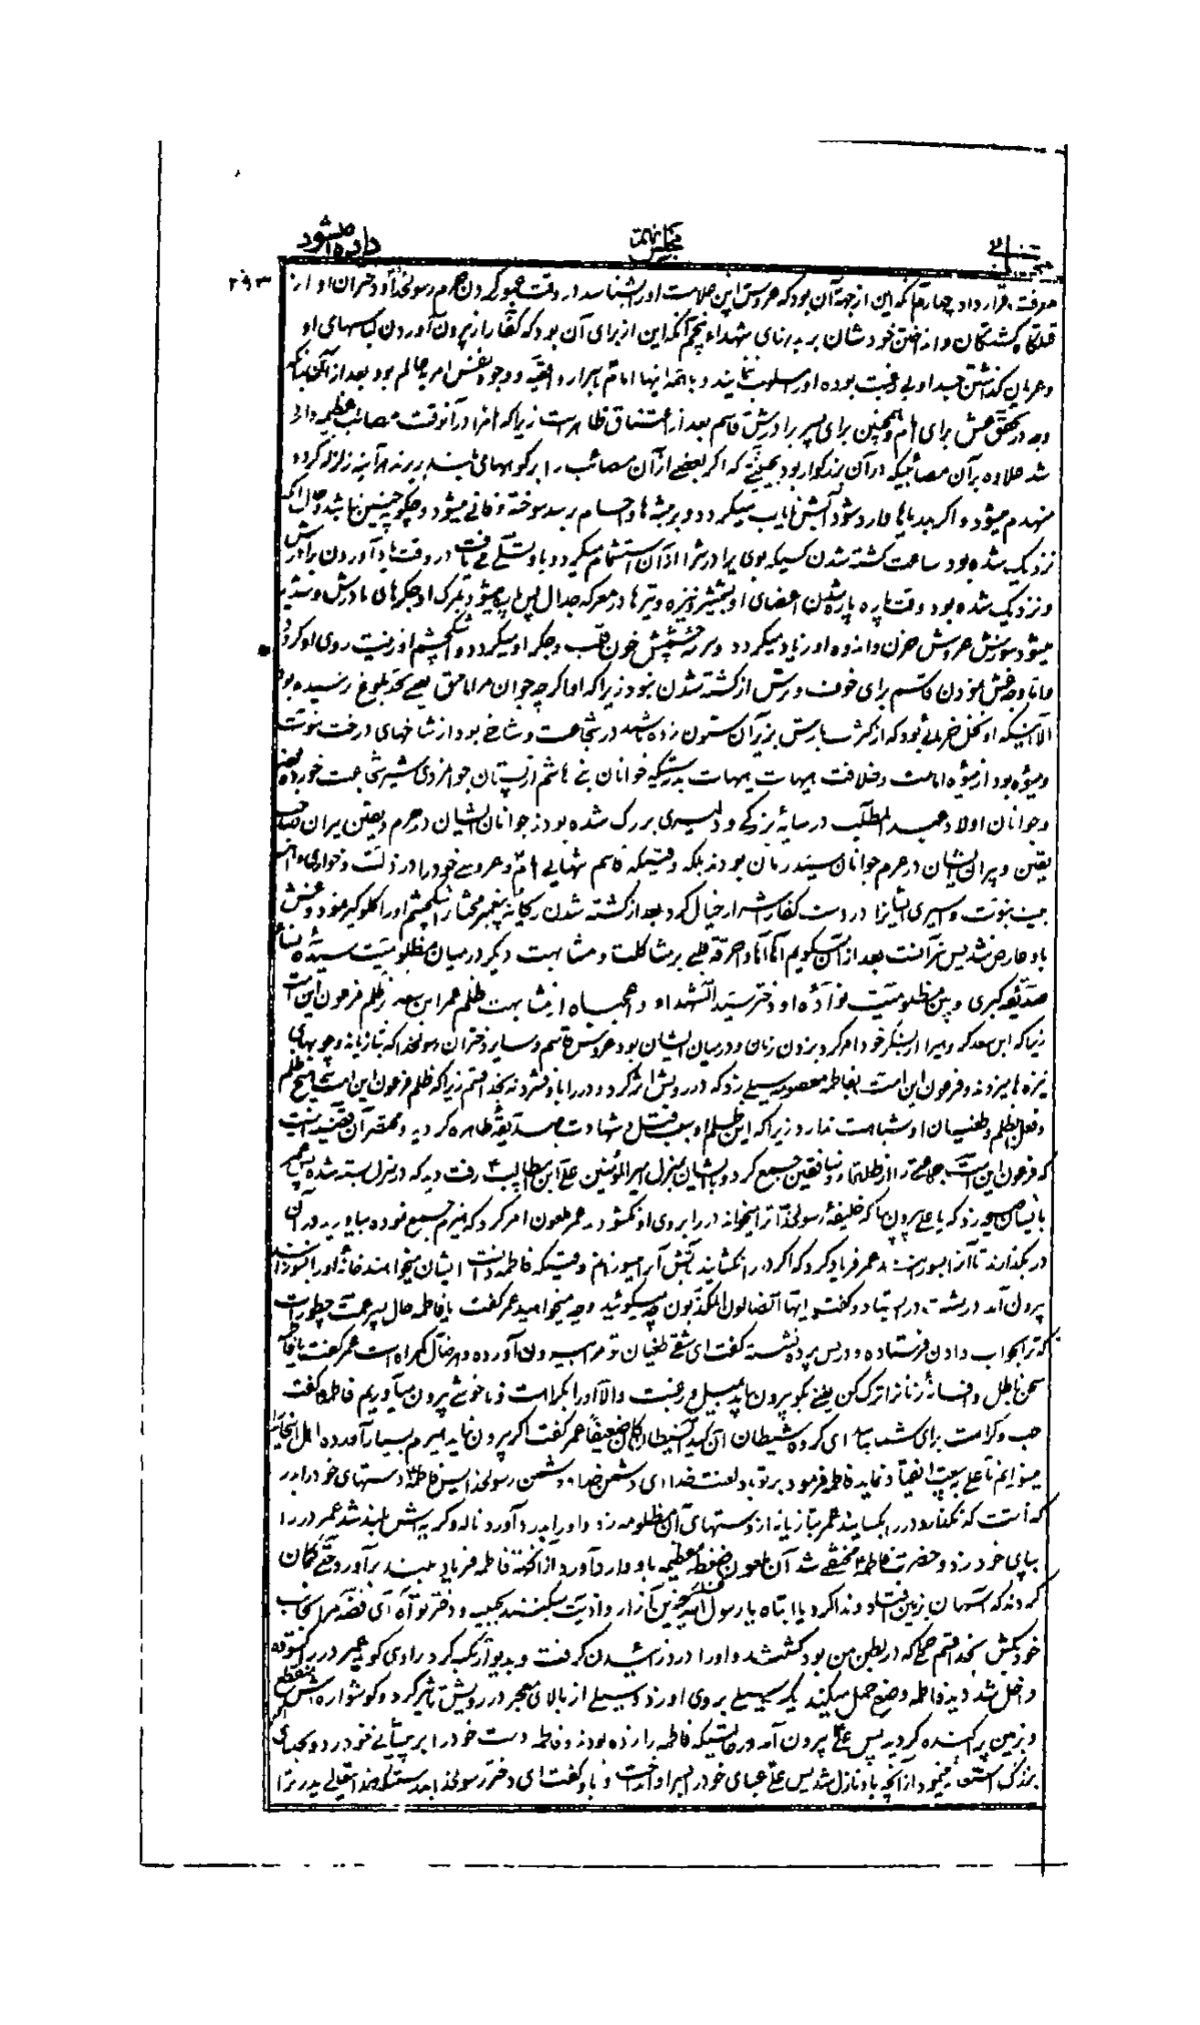 مجلس
۲۹۳
معرفت قرار داد چهارم آنکه این از جهة آن بود که عروس این علامت او را بشناسد در وقت عبور کردن حرم رسولخدا و دختران او از
قتلگاه کشتگان و انداختن خودشان بر بدنهای شهداء پنجم آنکه این از برای آن بود که کفار را از بیرون آوردن لباسهای او
و عریان گذاشتن جسد او بی رغبت بوده او را سلوب ننمایند و با همه اینها امام بهر
وجه در تحقق غش برای امام و همچنین برای پسر برادرش قاسم بعد از اعتناق ظاهر است زیرا که امام را در آنوقت مصائب عظیمه وارد
شد علاوه بر آن مصائبیکه در آن بزرگوار بود بحیثیتی که اگر بعضی از آن مصائب را بر کوههای بلند بریزند هر آینه زلزله کرده
منهدم میشود و اگر بدریاها وارد شود آبش نایاب میگردد و بر بیشه ها و اجسام برسد سوخته و فانی میشود و چگونه چنین نباشد و حال آنکه
نزدیک شده بود ساعت کشته شدن کسیکه بوی برادرش را از آن استشمام میکرد و باو تسلی می یافت در وقت یاد آوردن برادرش
و نزدیک شده بود وقت پاره پاره شدن اعضای او بشمشیر و نیزه و تیرها در معرکه جدال پس
میشود سوزش عروسش حزن و اندوه او زیاد میگردد و سرچشمه خون قلب و جگر او میگردد و اشک چشم او زینت روی او گردد
و اما وجه غش نمودن قاسم برای خوف و ترس از کشته شدن نبود زیرا که او اگر چه جوان مراهق یعنی بحد بلوغ نرسیده بود
الا اینکه او نخل خرمائی بود که از کثرت بارش بزیر آن ستون زده باشند در شجاعت و شاخی بود از شاخهای درخت نبوت
و میوه بود از میوه امامت و خلافت هیهات هیهات بدرستیکه جوانان بنی هاشم از پستان جوانمردی شیر شجاعت خورده
و جوانان اولاد عبد المطلب در سایه بزرگی و دلیری بزرگ شده بودند جوانان ایشان در حرم و یقین پیران صاحب
یقین و پیران ایشان در حرم جوانان سیّد زمان بودند بلکه وقتیکه قاسم تنهائی امام و عروسی خود را در ذلت و خواری
بیت نبوت و اسیری ایشانرا در دست کفار اشرار خیال کرد بعد از کشته شدن ریحانه پیغمبر مختار اشک چشم او را گلوگیر نمود و غش
باو عارض شد پس بعد از آن میگویم آه آه وا حرقة قلبی بر مشاکلت و مشابهت دیگر در میان مظلومیت سیّده نساء
صدیقه کبری و بین مظلومیت نواده او دختر سید الشهداء و عجبا از مشابهت ظلم عمر ابن سعد بر ظلم فرعون این امت
زیرا که ابن سعد گروهی را از لشکر خود امر کرد بزدن زنان و در میان ایشان بود عروس قاسم و سایر دختران رسولخدا که بتازیانه و چوبهای
نیزه ها میزدند و فرعون این امت بفاطمه معصومه سیلی زد که در رویش اثر کرد و در را باو فشرد نه بخدا قسم زیرا که ظلم فرعون این امت بهیچ ظلم
و فعل و ظلم و طغیان او شباهت ندارد زیرا که این ظلم او سبب قتل و شهادت صدیقه طاهره گردید و مختصر آن قضیه اینست
که فرعون این امت جماعتی را از طلقاء و منافقین جمع کرد و با ایشان بمنزل امیر المؤمنین علی ابن ابیطالب رفت دید که در منزل بسته شده پس
با ایشان صیحه زد که یا علی بیرون بیا که خلیفه رسولخدا ترا میخواند در را بروی او نگشود عمر ملعون امر کرد که هیزم جمع نموده بیاورید در آن
در بگذارند تا آنرا بسوزانند عمر فریاد کرد که اگر در را نگشایند بآتش آنرا میسوزانم وقتیکه فاطمه دانست ایشان میخواهند خانه او را بسوزانند
بیرون آمد در پشت در ایستاد و گفت ایها الضالون المکذبون چه میگوئید و چه میخواهید عمر گفت یا فاطمه حال پسر عمت چطور است
که ترا بجواب دادن فرستاده و در پس پرده نشسته گفت ای شقی طغیان تو مرا بیرون آورده و هر ضال گمراه است عمر گفت یا فاطمه
سخن باطل و افسانه زنانرا ترک کن یعنی بگو بیرون بیاید بمیل و رغبت و الا او را بکراهت و ناخوشی بیرون میآوریم فاطمه گفت
حب و کرامت برای شما نباید ای گروه شیطان ان کید الشیطان کان ضعیفا عمر گفت اگر بیرون نیاید هیزم بسیار آورده اهل اینخانه را
میسوزانم تا علی ببیعت انقیاد نماید فاطمه فرمود بر تو باد لعنت خدا ای دشمن خدا و دشمن رسولخدا پس فاطمه دستهای خود را بدر
گذاشت که نگذارد در را بگشایند عمر تازیانه از دستهای آن مظلومه زد و او را بدرد آورد ناله و گریه اش بلند شد عمر در را
بپای خود زد و حضرت فاطمه مخفی شد آن ملعون ضغطه عظیمه باو وارد آورد از آنکه فاطمه فریاد بلند برآورد حتی گمان
کردند که آسمان بزمین افتاد و ندا کرد یا ابتاه یا رسول الله چنین آزار و اذیت میکنند بحبیبه و دختر تو آه ای فضه مرا بجانب
خود بکش بخدا قسم حملی که در بطن من بود کشتند و او را درد زائیدن گرفت و بدیوار تکیه کرد راوی گوید عمر در را گشوده
داخل شد دید فاطمه وضع حمل میکند یک سیلی بروی او زد و سیلی از بالای معجر در رویش تأثیر کرد و گوشواره اش منقطع
و بزمین پراکنده گردید پس علی بیرون آمد در حالتیکه فاطمه را زده بودند و فاطمه دست خود را بر پیشانی خود زد و بخدای
بزرگ استغاثه مینمود از آنچه باو نازل شد پس علی عبای خود را بسر او انداخت و باو گفت ای دختر رسولخدا بدرستیکه خدا تعالی پدر ترا